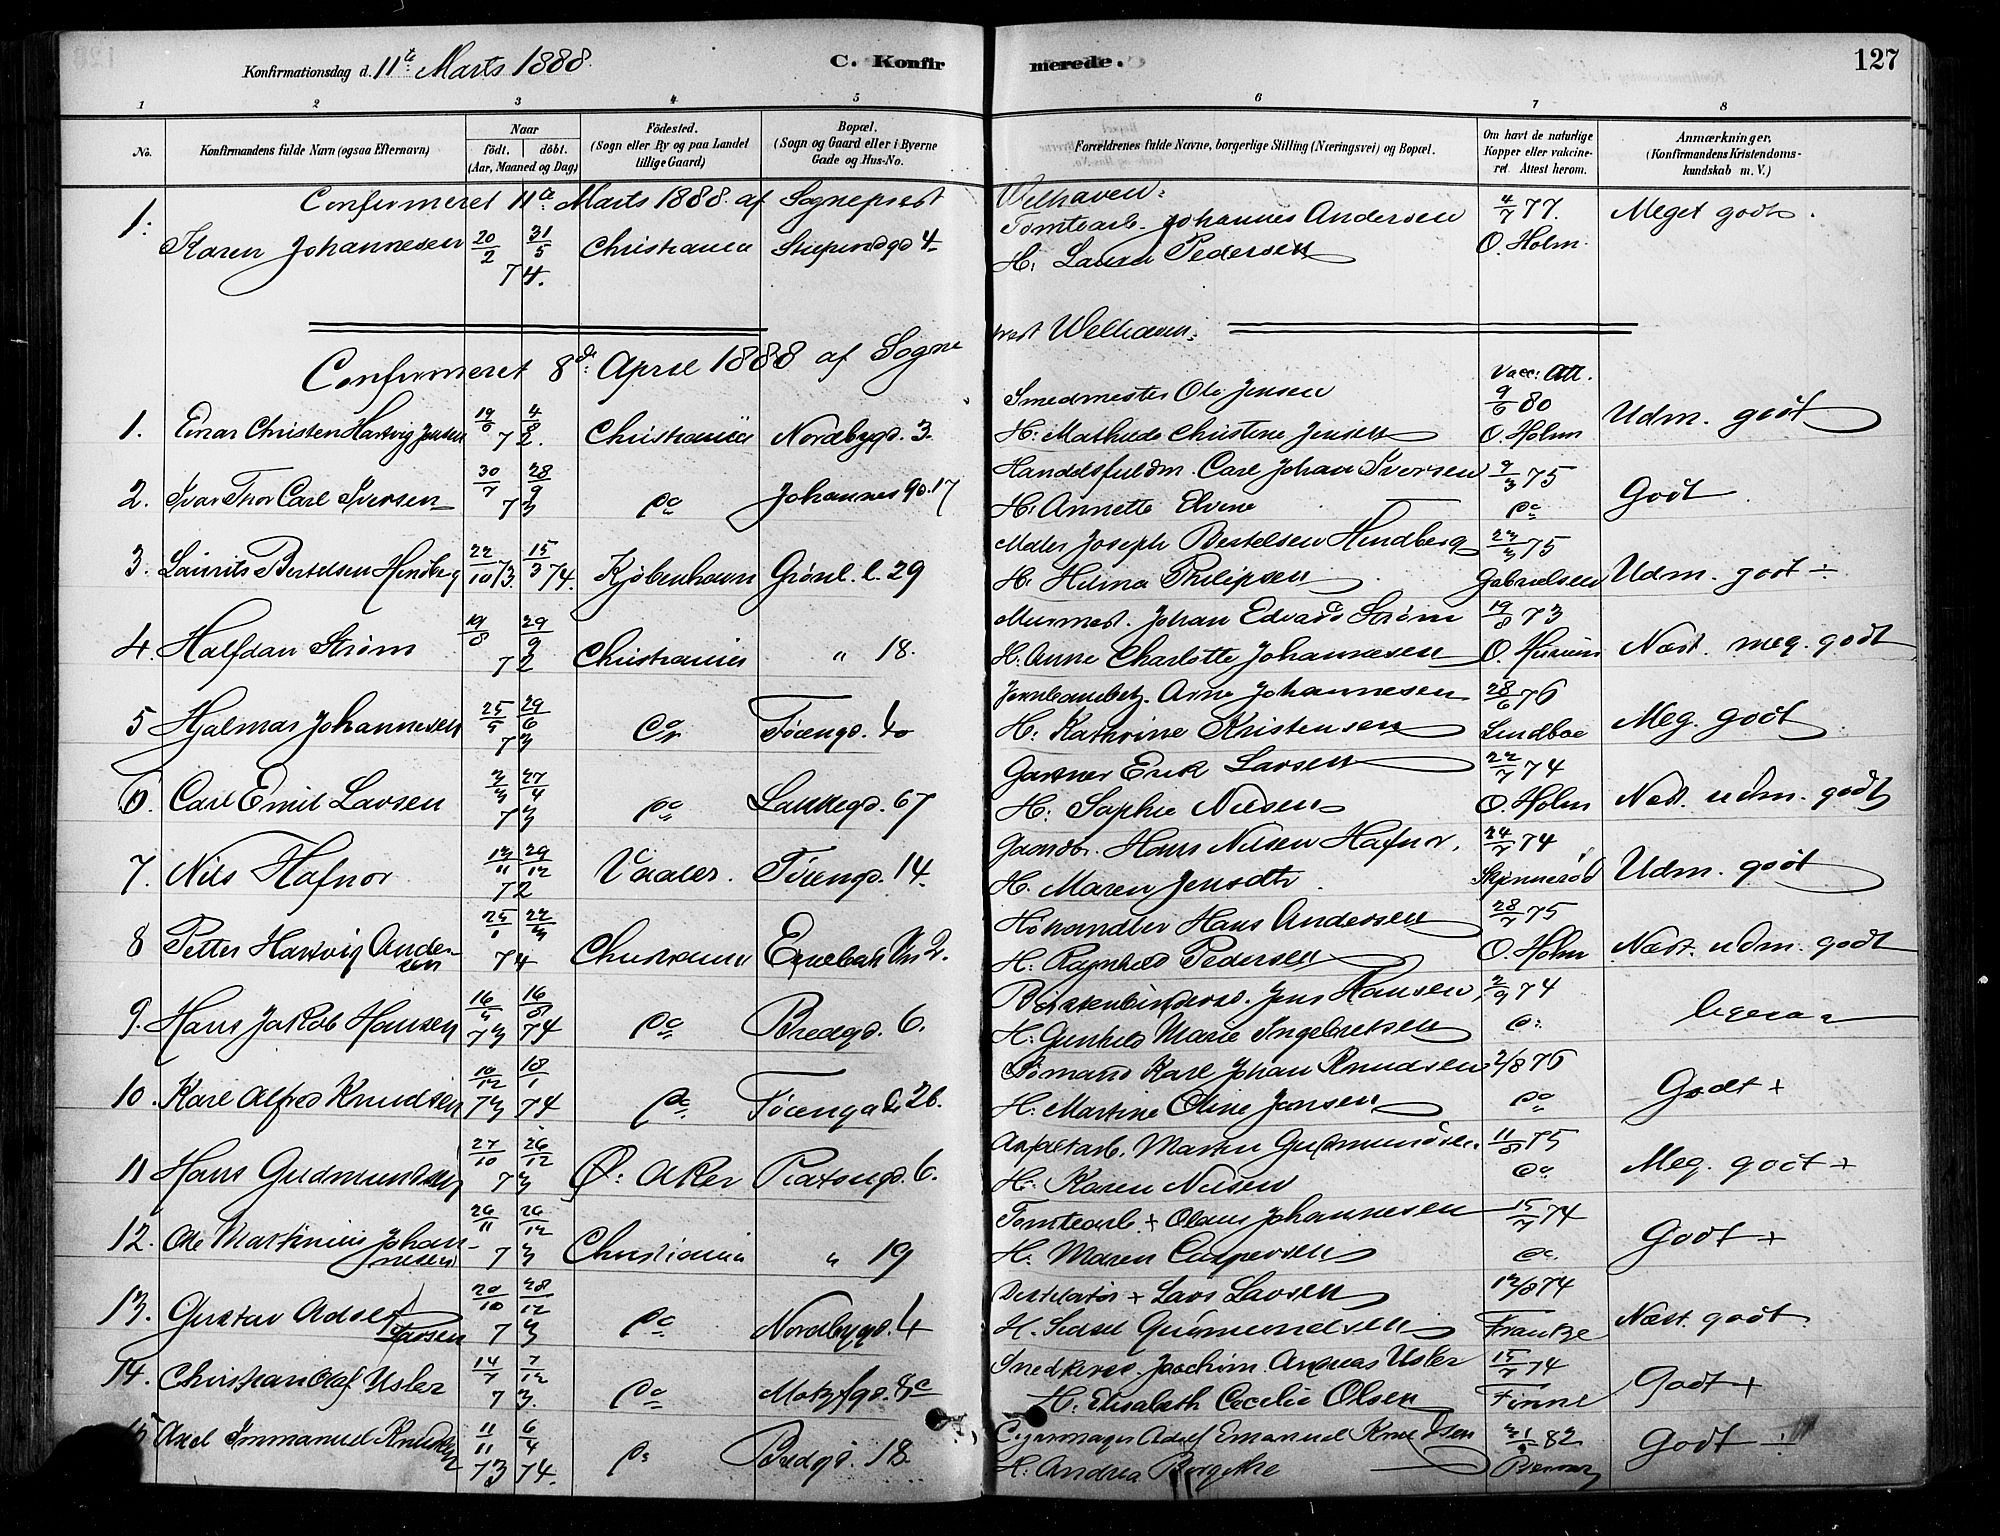 Konfirmationsdag d. 11te Marts 1888.
C. Konfirmerede.
127
1 2 3 4 5 6 7 8
No.
Konfirmandens fulde Navn (ogsaa Efternavn)
Naar
födt. döbt.
(Aar, Maaned og Dag)
Födested.
(Sogn eller By og paa Landet
tillige Gaard)
Bopæl.
(Sogn og Gaard eller i Byerne
Gade og Hus-No.
Forældrenes fulde Navne, borgerlige Stilling (Næringsvei) og Bopæl.
Om havt de naturlige
Kopper eller vakcine-
ret. Attest herom.
Anmærkninger,
(Konfirmandens Kristendoms-
kundskab m. V.)
Confirmeret 11te Marts 1888 af Sogneprest Welhaven:
1. Karen Johannesen 20/2 31/5 74. Christiania 4.
Tomtearb. Johannes Andersen 4/7 77. Meget godt.
H: Laura Pedersen O. Holm.
Confirmeret 8de April 1888 af Sogneprest Welhaven:
Vacc: Att.
1. Einar Christen Hartvig Jensen 72. Christiania Nordbygd. 3.
Smedmester Ole Jensen 9/6 80 Udm. godt
H: Mathilde Christine Jensen O. Holm
2. Ivar Thor Carl Iversen 30/7 28/9 73 do Johannesgd. 17
Handelsfuldm. Carl Johan Iversen 9/3 75 Godt
H: Annette Elvine do
3. Laurits Bertelsen Hindberg 22/10 73. 15/3 74. Kjøbenhavn Grønl. l. 29
Maler Joseph Bertelsen Hindberg 23/3 75 Udm. godt ÷
H: Hilma Philipsen Gabrielsen
4. Halfdan Strøm 19/8 29/9 72 Christiania " 18.
Murmest. Johan Edvard Strøm 19/8 73 Næst. meg. godt
H: Anne Charlotte Johannesen
5 Hjalmar Johannesen 25/5 29/6 73 do Tøiengd.
Arne Johannesen 28/6 76 Meg. godt
H: Kathrine Kristensen Lindboe
6. Carl Emil Larsen 3/3 27/4 73 do Lakkegd. 67
Gartner Erik Larsen 22/7 74 Næst. udm. godt
H: Sophie Nilsen O. Holm
7. Nils Hafnor 13/11 29/12 72 Vaaler. Tøiengd. 14.
Gaardbr. Hans Nilsen Hafnor. 24/7 74 Udm. godt
H. Maren Jensdtr. Skjennerød
8 Petter Hartvig Andersen 25/1 22/3 74 Christiania 2.
Høhandler Hans Andersen 28/7 75 Næst. udm. godt
H. Ragnhild Pedersen O. Holm
9. Hans Jakob Hansen 73 74 do Bredgd. 6.
Børstenbindersv. Jens Hansen 2/9 74
H: Gunhild Marie Ingebretsen do
10. Karl Alfred Knudsen 10/12 73 18/1 74 do Tøiengad. 26.
Sømand Karl Johan Knudsen 2/8 76 Godt +
H: Martine Oline Jansen do
11 Hans Gudmundsen 27/10 26/12 73 Ø: Aker Platousgd. 6.
Asfaltarb. Martin Gudmundsen. 11/8 75 Meg. godt +
H: Karen Nilsen do
12. Ole Martinius Johannesen 26/11 26/12 73 Christiania " 19
Tomtearb + Olaus Johannesen 15/7 74 Godt +
H: Maren Caspersen do
13. Gustav Adolf Larsen 20/10 28/12 73 do Nordbygd. 4
Destillatør + Lars Larsen 12/8 74 Næst. godt
H. Sidsel Gudmundsen Frantze
14. Christian Olaf Usler 14/7 7/12 73. do Motzfgd. 8c
Snedkersv. Joachim Andreas Usler 15/7 74 Godt +
H. Elisabeth Cecilie Olsen Finne
15 Axel Immanuel Knudsen 11/11 73 6/4 74. do Bredgd. 18.
Cigarmager Adolf Emanuel Knudsen 82 Godt ÷
H. Andrea